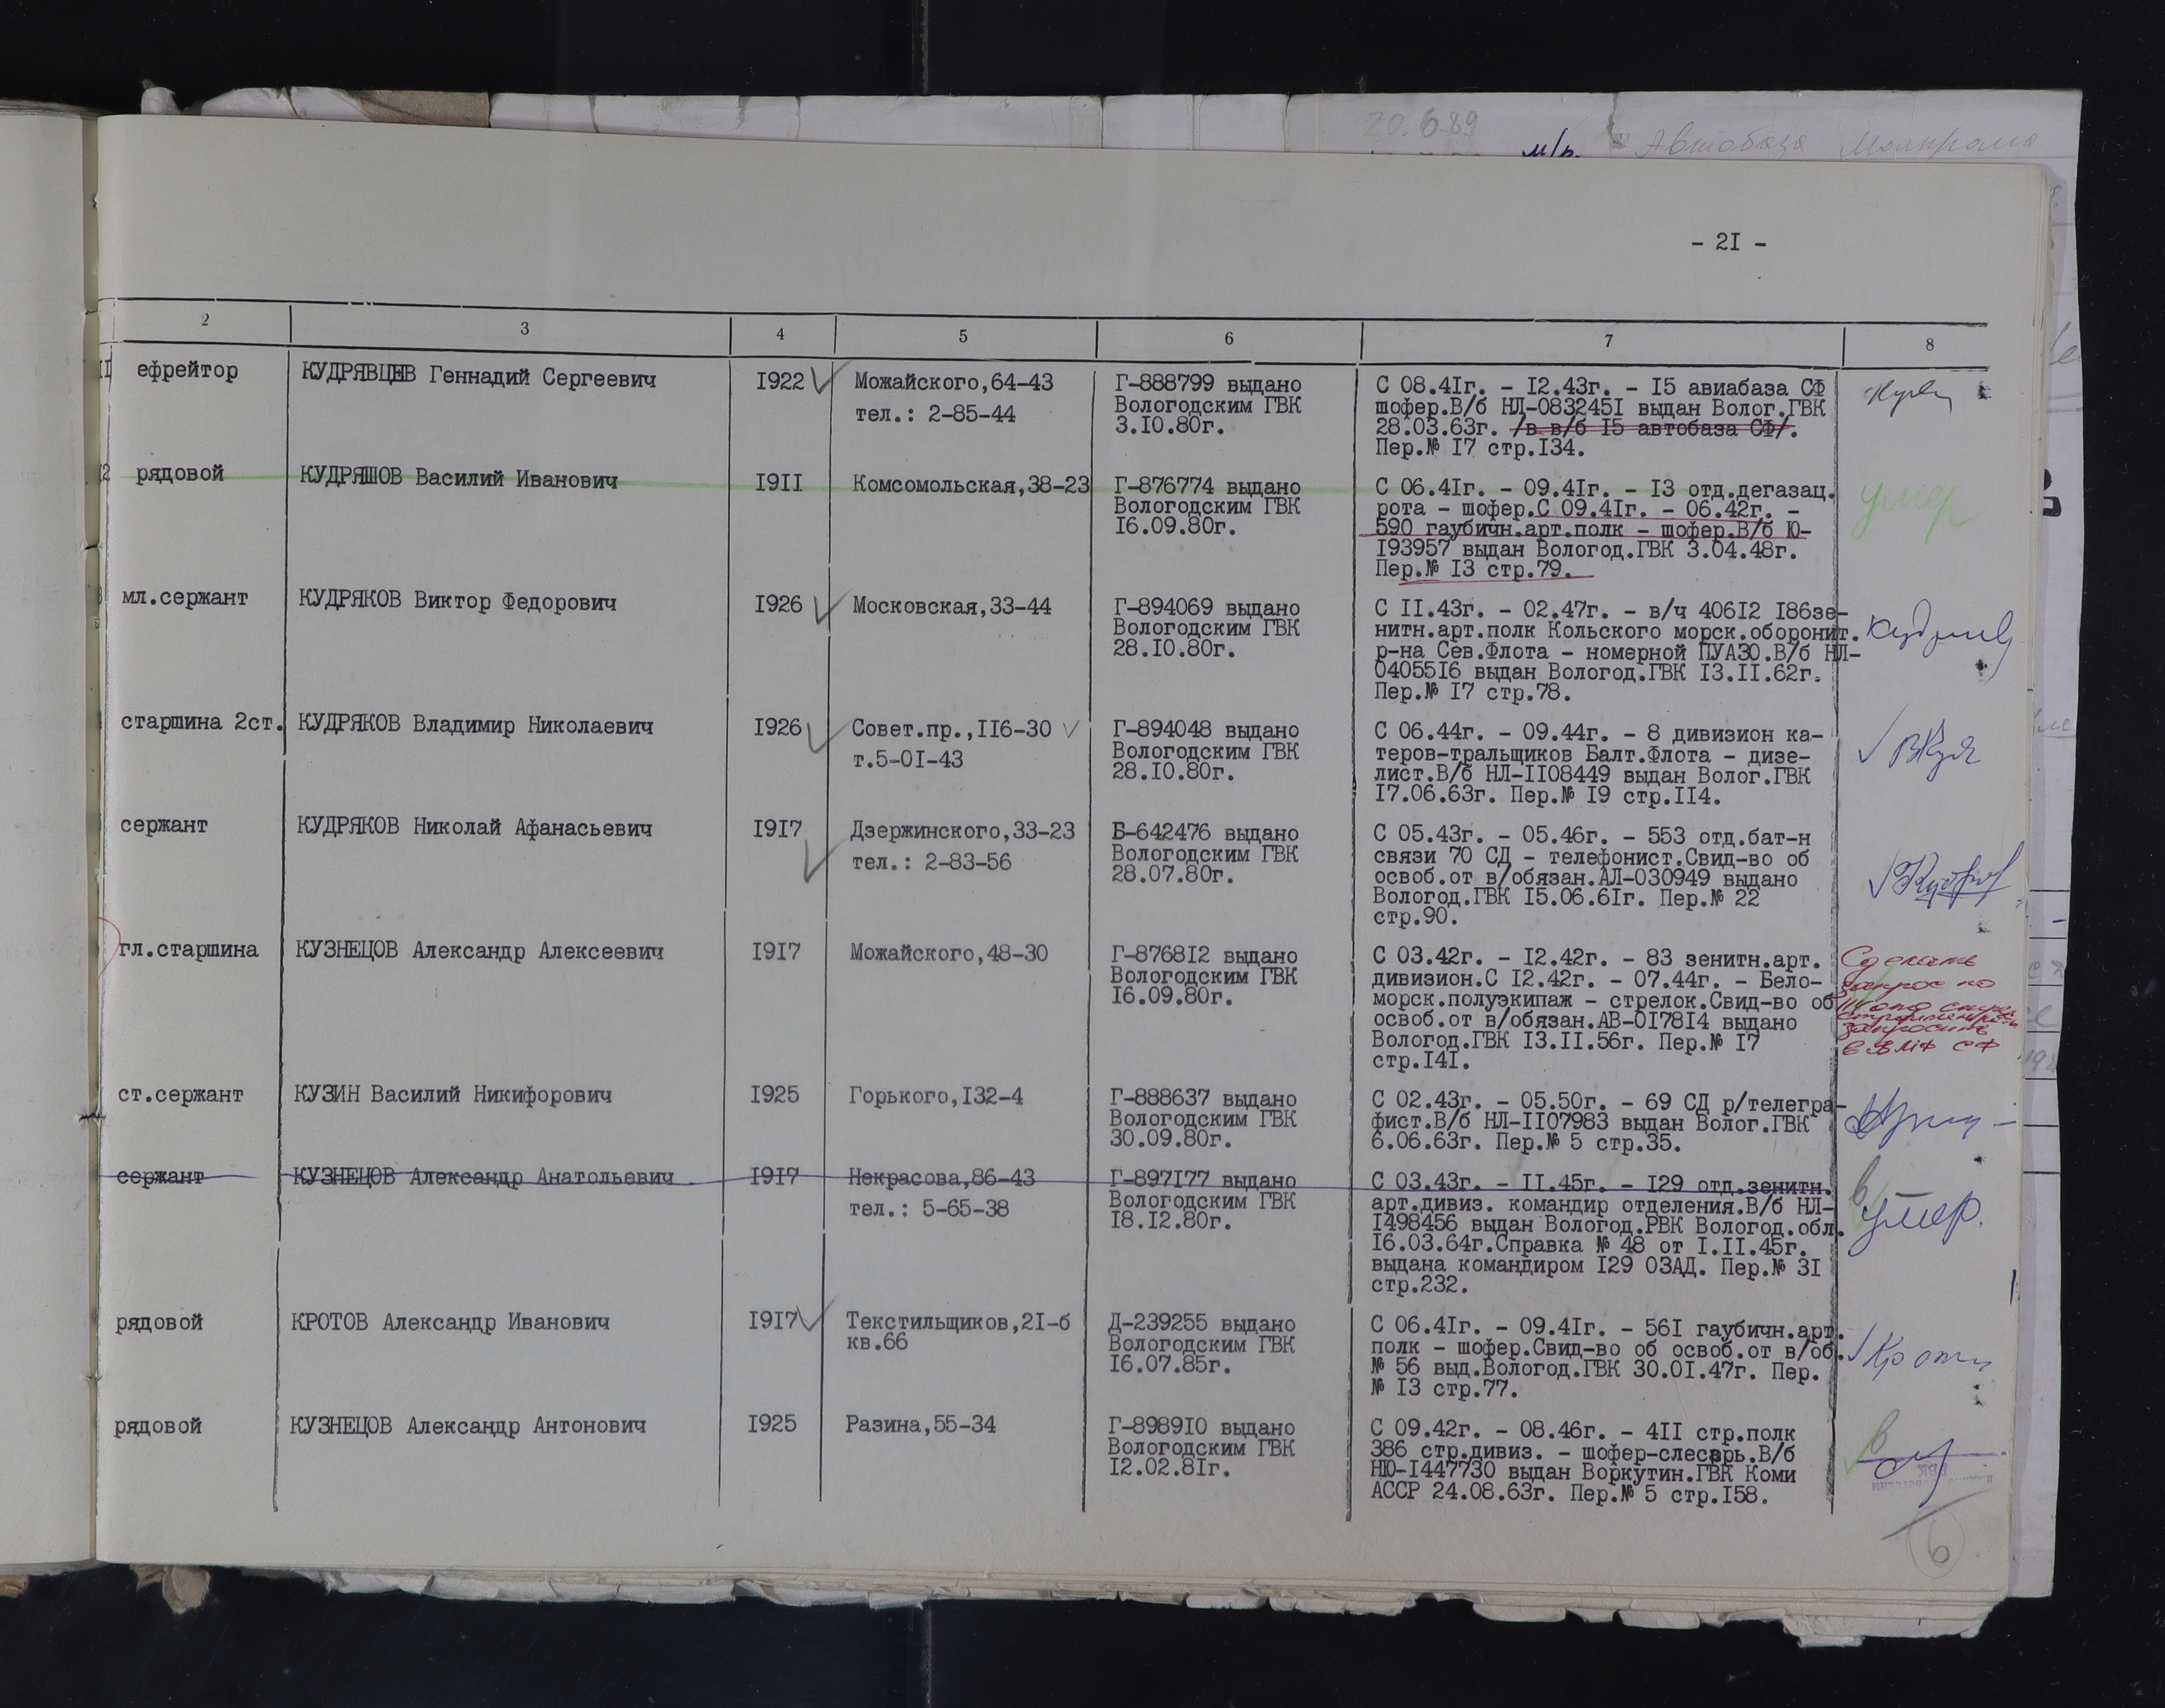 20.6.89
м/р.
Автобаза
- 2I -
2 3 4 5 6 7 8
ефрейтор КУДРЯВЦЕВ Геннадий Сергеевич I922 Можайского,64-43 Г-888799 выдано С 08.4Iг. - I2.43г. - I5 авиабаза СФ
тел.: 2-85-44 Вологодским ГВК шофер.В/б НЛ-083245I выдан Волог.ГВК
3.I0.80г. 28.03.63г. /в в/б I5 автобаза СФ/.
Пер.№ I7 стр.I34.
рядовой КУДРЯШОВ Василий Иванович I9II Комсомольская,38-23 Г-876774 выдано С 06.4Iг. - 09.4Iг. - I3 отд.дегазац. умер
Вологодским ГВК рота - шофер.С 09.4Iг. - 06.42г. -
I6.09.80г. 590 гаубичн.арт.полк - шофер.В/б Ю-
I93957 выдан Вологод.ГВК 3.04.48г.
Пер.№ I3 стр.79.
мл.сержант КУДРЯКОВ Виктор Федорович I926 Московская,33-44 Г-894069 выдано С II.43г. - 02.47г. - в/ч 406I2 I86зе-
Вологодским ГВК нитн.арт.полк Кольского морск.оборонит.
28.I0.80г. р-на Сев.Флота - номерной ПУАЗО.В/б НЛ-
04055I6 выдан Вологод.ГВК I3.II.62г.
Пер.№ I7 стр.78.
старшина 2ст. КУДРЯКОВ Владимир Николаевич I926 Совет.пр.,II6-30 Г-894048 выдано С 06.44г. - 09.44г. - 8 дивизион ка-
т.5-0I-43 Вологодским ГВК теров-тральщиков Балт.Флота - дизе-
28.I0.80г. лист.В/б НЛ-II08449 выдан Волог.ГВК
I7.06.63г. Пер.№ I9 стр.II4.
сержант КУДРЯКОВ Николай Афанасьевич I9I7 Дзержинского,33-23 Б-642476 выдано С 05.43г. - 05.46г. - 553 отд.бат-н
тел.: 2-83-56 Вологодским ГВК связи 70 СД - телефонист.Свид-во об
28.07.80г. освоб.от в/обязан.АЛ-030949 выдано
Вологод.ГВК I5.06.6Iг. Пер.№ 22
стр.90.
гл.старшина КУЗНЕЦОВ Александр Алексеевич I9I7 Можайского,48-30 Г-8768I2 выдано С 03.42г. - I2.42г. - 83 зенитн.арт. Сделать
Вологодским ГВК дивизион.С I2.42г. - 07.44г. - Бело- запрос по
I6.09.80г. морск.полуэкипаж - стрелок.Свид-во об
освоб.от в/обязан.АВ-0I78I4 выдано
Вологод.ГВК I3.II.56г. Пер.№ I7
стр.I4I.
ст.сержант КУЗИН Василий Никифорович I925 Горького,I32-4 Г-888637 выдано С 02.43г. - 05.50г. - 69 СД р/телегра-
Вологодским ГВК фист.В/б НЛ-II07983 выдан Волог.ГВК
30.09.80г. 6.06.63г. Пер.№ 5 стр.35.
сержант КУЗНЕЦОВ Александр Анатольевич I9I7 Некрасова,86-43 Г-897I77 выдано С 03.43г. - II.45г. - I29 отд.зенитн. в
тел.: 5-65-38 Вологодским ГВК арт.дивиз. командир отделения.В/б НЛ- умер.
I8.I2.80г. I498456 выдан Вологод.РВК Вологод.обл.
I6.03.64г.Справка № 48 от I.II.45г.
выдана командиром I29 ОЗАД. Пер.№ 3I
стр.232.
рядовой КРОТОВ Александр Иванович I9I7 Текстильщиков,2I-б Д-239255 выдано С 06.4Iг. - 09.4Iг. - 56I гаубичн.арт.
кв.66 Вологодским ГВК полк - шофер.Свид-во об освоб.от в/об.
I6.07.85г. № 56 выд.Вологод.ГВК 30.0I.47г. Пер.
№ I3 стр.77.
рядовой КУЗНЕЦОВ Александр Антонович I925 Разина,55-34 Г-8989I0 выдано С 09.42г. - 08.46г. - 4II стр.полк в
Вологодским ГВК 386 стр.дивиз. - шофер-слесарь.В/б
I2.02.8Iг. НЮ-I447730 выдан Воркутин.ГВК Коми
АССР 24.08.63г. Пер.№ 5 стр.I58.
6